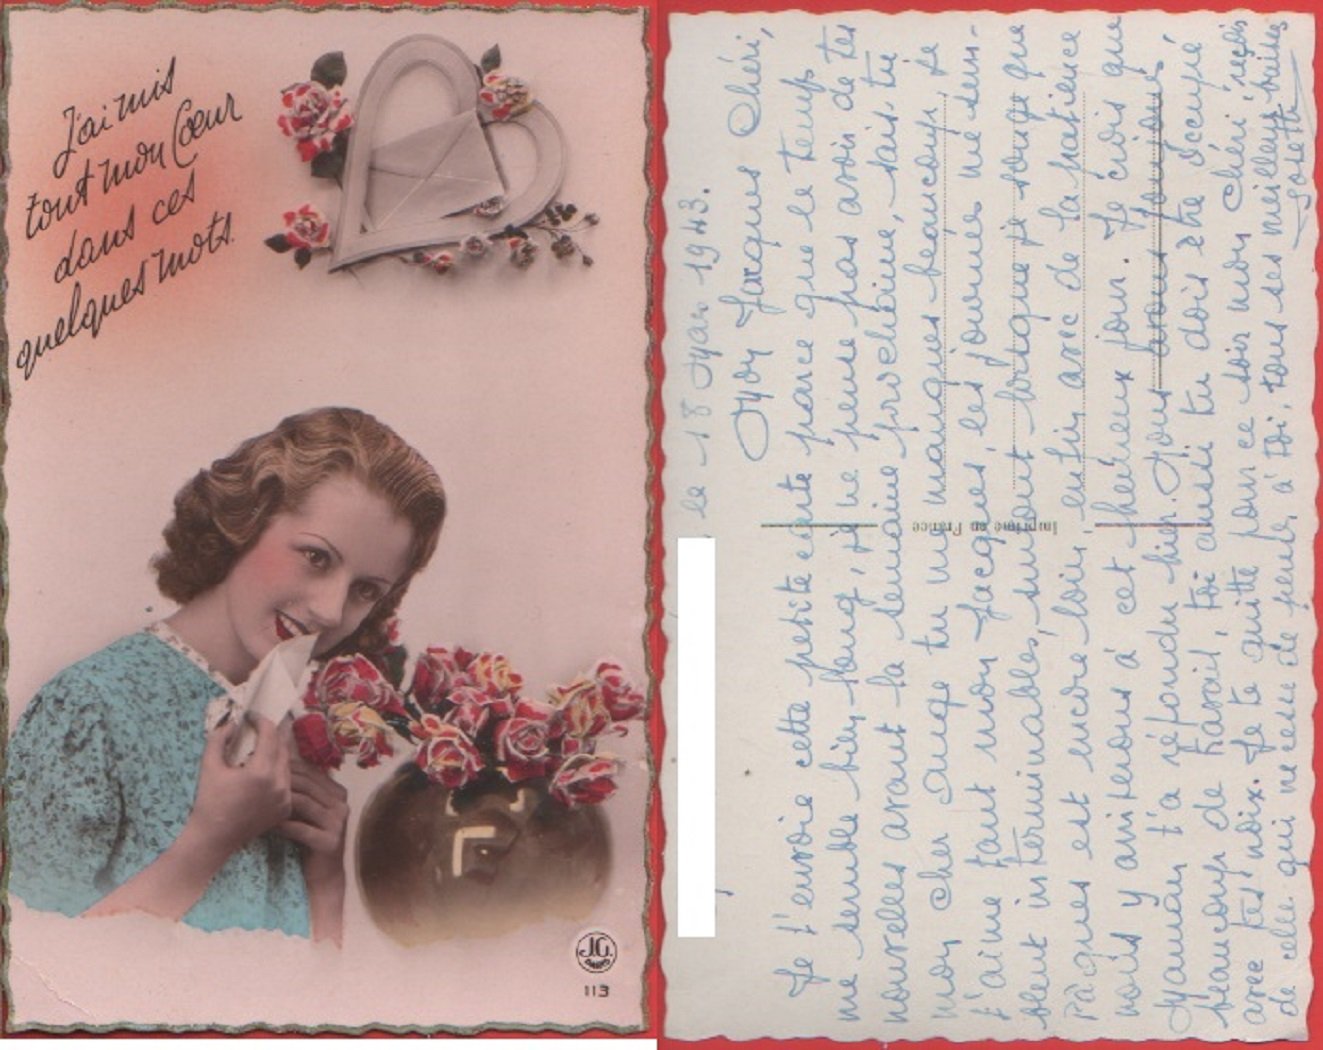 J'ai mis
tout mon Cœur
dans ces
quelques mots.
J.G.
PARIS
113
le 18 Mars 1943.
Mon Jacques Chéri,
Je t'envoie cette petite carte parce que le temps
me semble bien long, je ne pense pas avoir de tes
nouvelles avant la semaine prochaine, sais tu
mon cher Ange tu me manques beaucoup, je
t'aime tant mon Jacques, les journées me sem-
blent interminables, surtout lorsque je songe que
Pâques est encore loin, enfin avec de la patience
nous y arriverons à cet heureux jour. Je crois que
Maman t'a répondu hier. Nous avons toujours
beaucoup de travail, toi aussi tu dois être occupé
avec tes noix. Je te quitte pour ce soir mon chéri, reçois
de celle qui ne cesse de penser à toi, tous ses meilleurs baisers
Josette
Imprimé en France